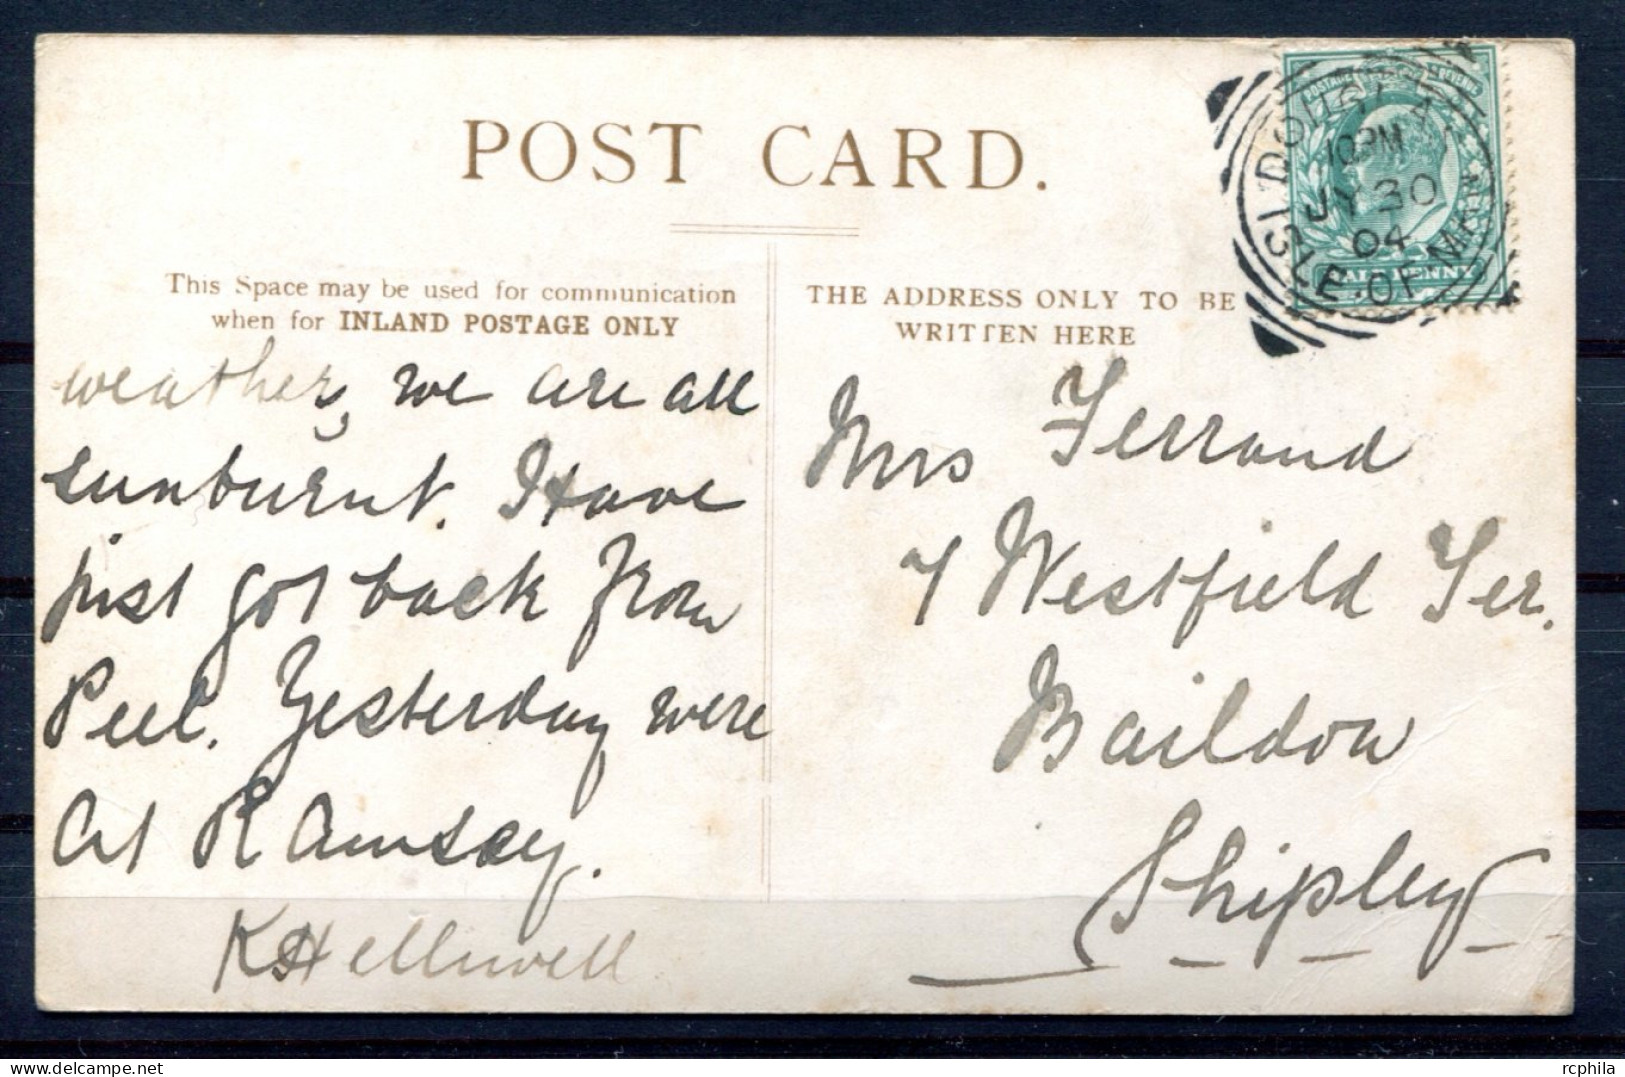 POST CARD.
POSTAGE & REVENUE
DOUGLAS
10PM
JY 30
04
ISLE.OF.MAN
HALFPENNY
This Space may be used for communication
when for INLAND POSTAGE ONLY
THE ADDRESS ONLY TO BE
WRITTEN HERE
weather, we are all
sunburnt. Have
just got back from
Peel. Yesterday were
at Ramsey.
K Helliwell
Mrs Ferrand
7 Westfield Ter.
Baildon
Shipley
rcphila
delcampe.net